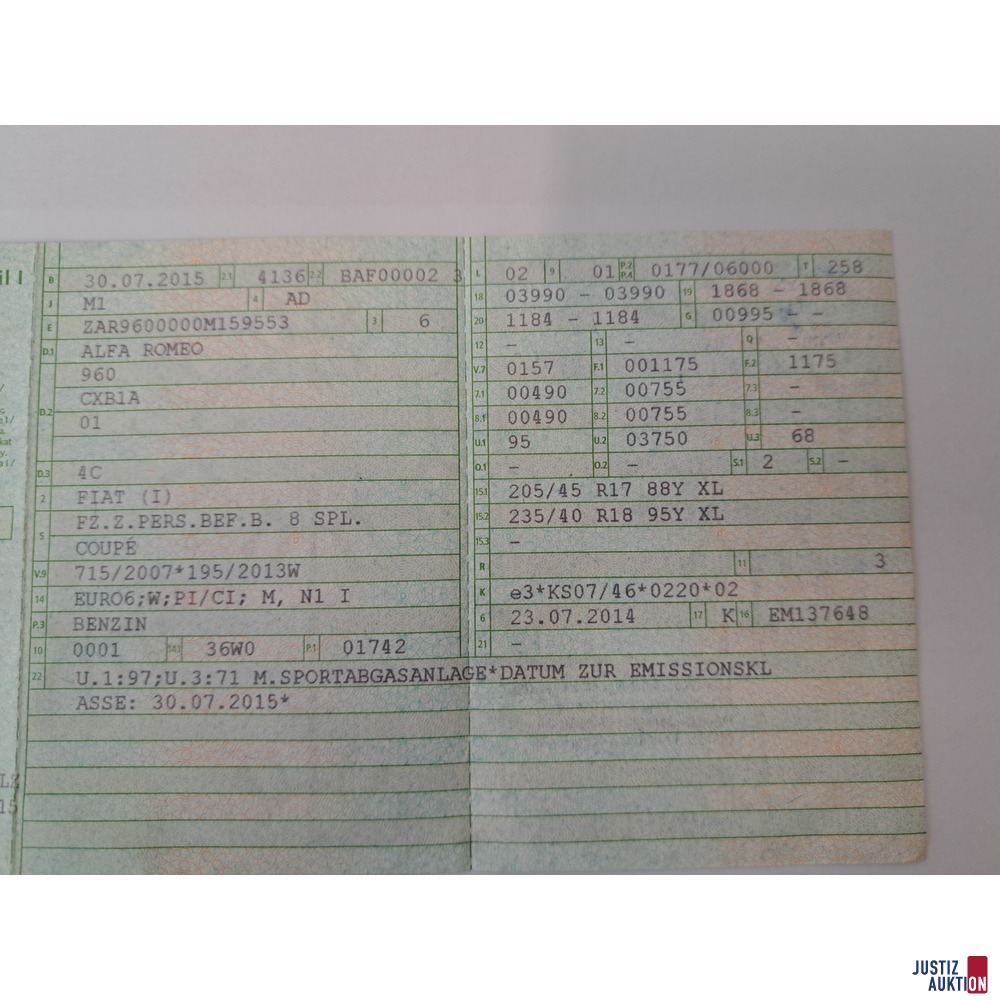 il I
B 30.07.2015 2.1 4136 2.2 BAF00002 3
J M1 4 AD
E ZAR9600000M159553 3 6
D.1 ALFA ROMEO
960
D.2 CXB1A
01
D.3 4C
2 FIAT (I)
5 FZ.Z.PERS.BEF.B. 8 SPL.
COUPÉ
V.9 715/2007*195/2013W
14 EURO6;W;PI/CI; M, N1 I
P.3 BENZIN
10 0001 14.1 36W0 P.1 01742
L 02 9 01 P.2 P.4 0177/06000 T 258
18 03990 - 03990 19 1868 - 1868
20 1184 - 1184 G 00995 - -
12 - 13 - Q -
V.7 0157 F.1 001175 F.2 1175
7.1 00490 7.2 00755 7.3 -
8.1 00490 8.2 00755 8.3 -
U.1 95 U.2 03750 U.3 68
O.1 - O.2 - S.1 2 S.2 -
15.1 205/45 R17 88Y XL
15.2 235/40 R18 95Y XL
15.3 -
R 11 3
K e3*KS07/46*0220*02
6 23.07.2014 17 K 16 EM137648
21 -
22 U.1:97;U.3:71 M.SPORTABGASANLAGE*DATUM ZUR EMISSIONSKL
ASSE: 30.07.2015*
JUSTIZ
AUKTION